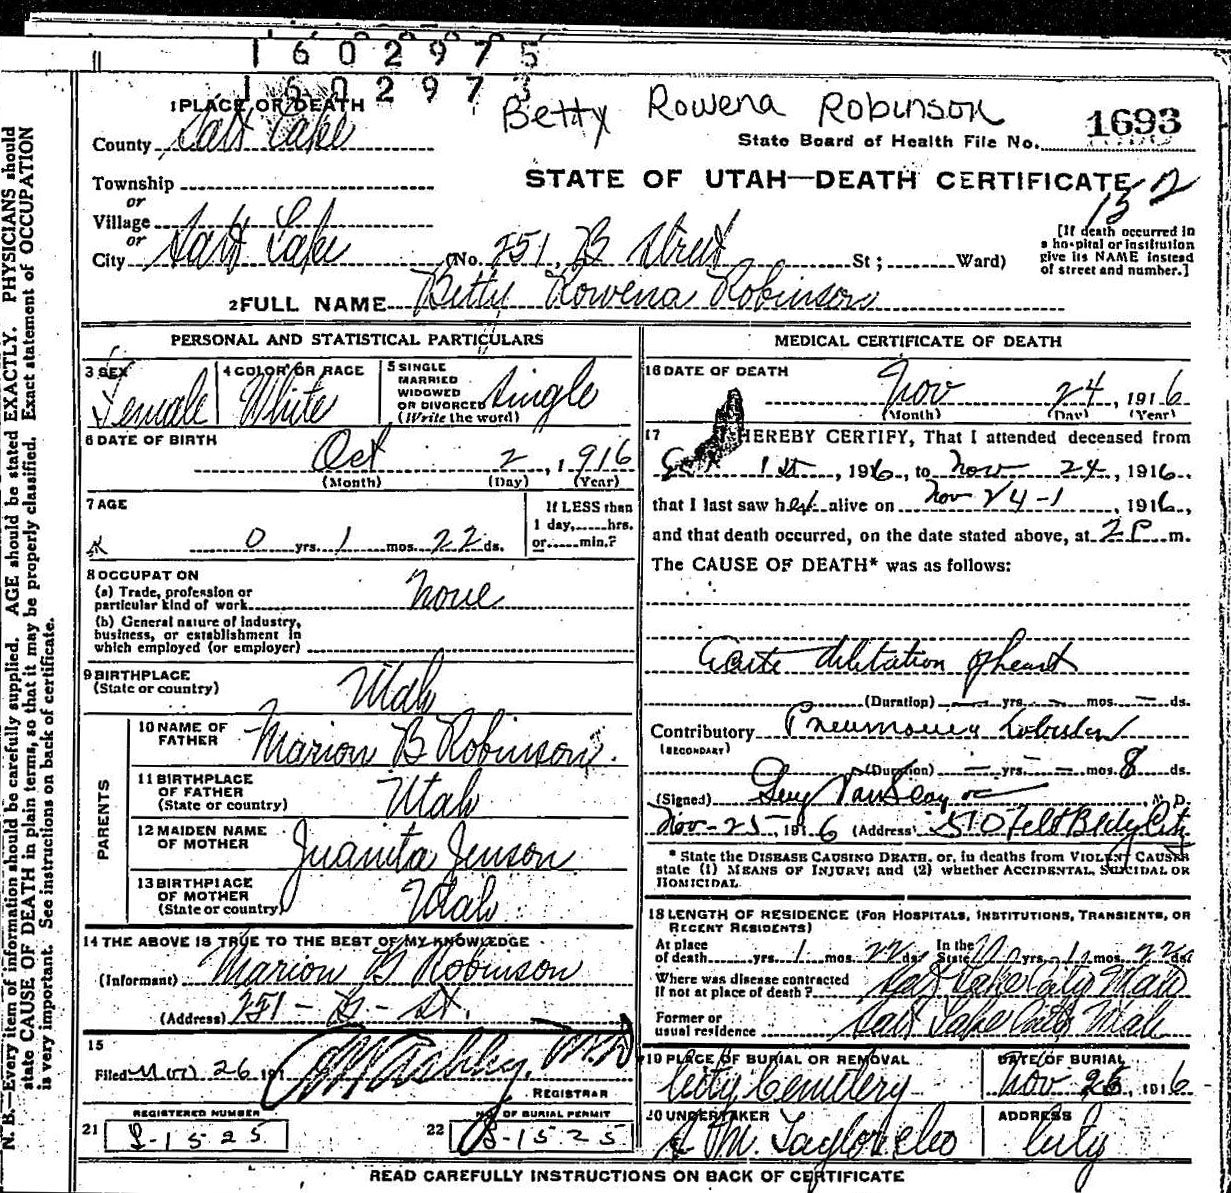 1602975
1602973
Betty Rowena Robinson
1 PLACE OF DEATH
1693
County Salt Lake
State Board of Health File No.
Township
STATE OF UTAH—DEATH CERTIFICATE
or
Village
or
City Salt Lake (No. 251 B Street St; Ward)
[If death occurred in
a hospital or institution
give its NAME instead
of street and number.]
2 FULL NAME Betty Rowena Robinson
PERSONAL AND STATISTICAL PARTICULARS
3 SEX Female
4 COLOR OR RACE White
5 SINGLE
MARRIED
WIDOWED
OR DIVORCED
(Write the word) Single
6 DATE OF BIRTH
Oct 2, 1916
(Month) (Day) (Year)
7 AGE
0 yrs. 1 mos. 22 ds.
If LESS than
1 day, hrs.
or min.?
8 OCCUPATON
(a) Trade, profession or
particular kind of work None
(b) General nature of industry,
business, or establishment in
which employed (or employer)
9 BIRTHPLACE
(State or country) Utah
PARENTS
10 NAME OF
FATHER Marion B Robinson
11 BIRTHPLACE
OF FATHER
(State or country) Utah
12 MAIDEN NAME
OF MOTHER Juanita Jenson
13 BIRTHPLACE
OF MOTHER
(State or country) Utah
14 THE ABOVE IS TRUE TO THE BEST OF MY KNOWLEDGE
(Informant) Marion B Robinson
(Address) 251 - B - St.
15
Filed Nov 26 191 M.D.
REGISTRAR
REGISTERED NUMBER
21 S-1525
OF BURIAL PERMIT
22 S-1525
MEDICAL CERTIFICATE OF DEATH
16 DATE OF DEATH
Nov 24, 1916
(Month) (Day) (Year)
17 I HEREBY CERTIFY, That I attended deceased from
1st, 1916, to Nov 24, 1916.
that I last saw her alive on Nov 24-1, 1916,
and that death occurred, on the date stated above, at 2 P m.
The CAUSE OF DEATH* was as follows:
Acute dilitation of heart
(Duration) — yrs. — mos. — ds.
Contributory Pneumonia Lobular
(SECONDARY)
(Duration) — yrs. — mos. 8 ds.
(Signed) Guy M. D.
Nov-25, 1916 (Address) 510 Felt Bldg City
* State the DISEASE CAUSING DEATH, or, in deaths from VIOLENT CAUSES
state (1) MEANS OF INJURY; and (2) whether ACCIDENTAL, SUICIDAL OR
HOMICIDAL.
18 LENGTH OF RESIDENCE (FOR HOSPITALS, INSTITUTIONS, TRANSIENTS, OR
RECENT RESIDENTS)
At place
of death yrs. 1 mos. 22 ds.
In the
State yrs. 1 mos. 22 ds.
Where was disease contracted
if not at place of death? Salt Lake City Utah
Former or
usual residence Salt Lake City Utah
19 PLACE OF BURIAL OR REMOVAL
City Cemetery
DATE OF BURIAL
Nov 26, 1916
20 UNDERTAKER
M. Taylor & Co
ADDRESS
City
READ CAREFULLY INSTRUCTIONS ON BACK OF CERTIFICATE
N. B.—Every item of information should be carefully supplied. AGE should be stated EXACTLY. PHYSICIANS should
state CAUSE OF DEATH in plain terms, so that it may be properly classified. Exact statement of OCCUPATION
is very important. See instructions on back of certificate.